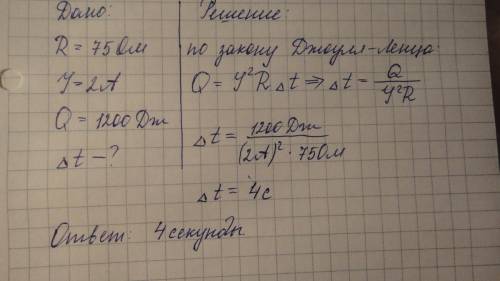 Дано:
R = 75 Ом
I = 2А
Q = 1200 Дж
Δt - ?
Решение:
по закону Джоуля-Ленца:
Q = I²RΔt ⇒ Δt = Q / I²R
Δt = 1200 Дж / (2А)² · 75 Ом
Δt = 4с
Ответ: 4 секунды